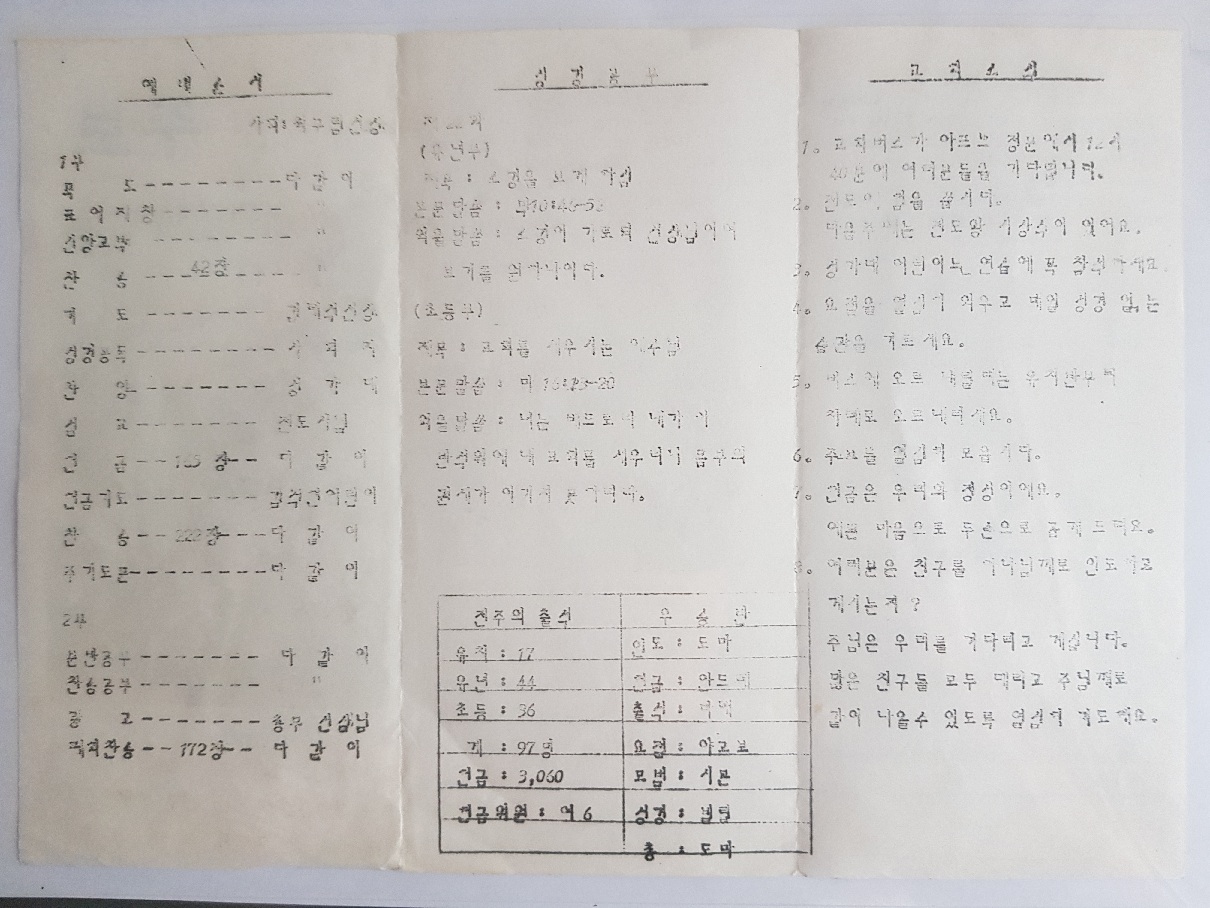 예배순서
사회:
1부
묵 도 -------- 다 같 이
표어제창 -------- "
신앙고백 -------- "
찬 송 -- 42장 -- "
기 도 --------
성경봉독 -------- 사 회 자
찬 양 -------- 성 가 대
설 교 -------- 전도사님
헌 금 -- 장 -- 다 같 이
헌금기도 -------- 어린이
찬 송 -- 222장 -- 다 같 이
주기도문 -------- 다 같 이
2부
분반공부 -------- 다 같 이
찬송공부 -------- "
광 고 -------- 총무 선생님
폐회찬송 -- 172장 -- 다 같 이
성 경 공 부
(유년부)
제목 : 소경을 보게 하심
본문말씀 : 막10:46-52
외울말씀 : 소경이 가로되 선생님이여
보기를 원하나이다.
(초등부)
제목 : 교회를 세우시는 예수님
본문말씀 : 마 16:13-20
외울말씀 : 너는 베드로라 내가 이
반석위에 내 교회를 세우리니 음부의
권세가 이기지 못하리라.
전주의 출석
유치 : 17
유년 : 44
초등 : 36
계 : 97명
헌금 : 3,060
헌금위원 : 여 6
우 승 반
인도 : 도마
헌금 : 안드레
출석 :
요절 : 야고보
모범 : 시몬
성경 : 빌립
총 : 도마
교 회 소 식
1. 교회버스가 아파트 정문에서 12시
40분에 여러분들을 기다립니다.
2. 전도에 힘을 씁시다.
다음주에는 전도왕 시상식이 있어요.
3. 성가대 어린이는 연습에 꼭 참석하세요.
4. 요절을 열심히 외우고 매일 성경 읽는
습관을 기르세요.
5. 버스에 오르 내릴때는 유치반부터
차례로 오르내리세요.
6. 주보를 열심히 모읍시다.
7. 헌금은 우리의 정성이에요.
예쁜 마음으로 두손으로 공개 드려요.
8. 여러분은 친구를 하나님께로 인도하고
계시는지 ?
주님은 우리를 기다리고 계십니다.
많은 친구들 모두 데리고 주님께로
같이 나올수 있도록 열심히 기도해요.